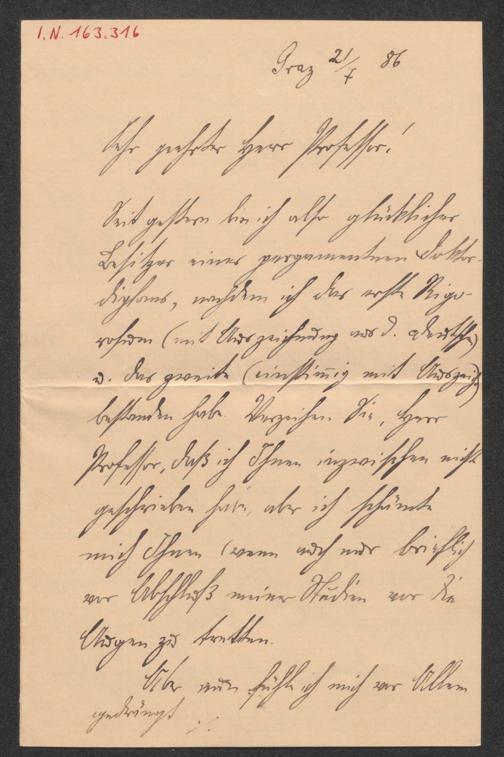 I.N. 163.316
Graz 21/7 86
Sehr geehrter Herr Professor!
Seit gestern bin ich also glücklicher
Besitzer eines pergamentnen Doktor-
diploms, nachdem ich das erste Rigo-
rosum (mit Auszeichnung aus d. Deutschen)
u. das zweite (einstimmig mit Auszeich
bestanden habe. Verzeihen Sie, Herr
Professor, daß ich Ihnen inzwischen nicht
geschrieben habe, aber ich schämte
mich Ihnen (wenn auch nur brieflich
vor Abschluß meiner Studien vor die
Augen zu tretten.
Aber nun fühle ich mich vor Allem
gedrängt